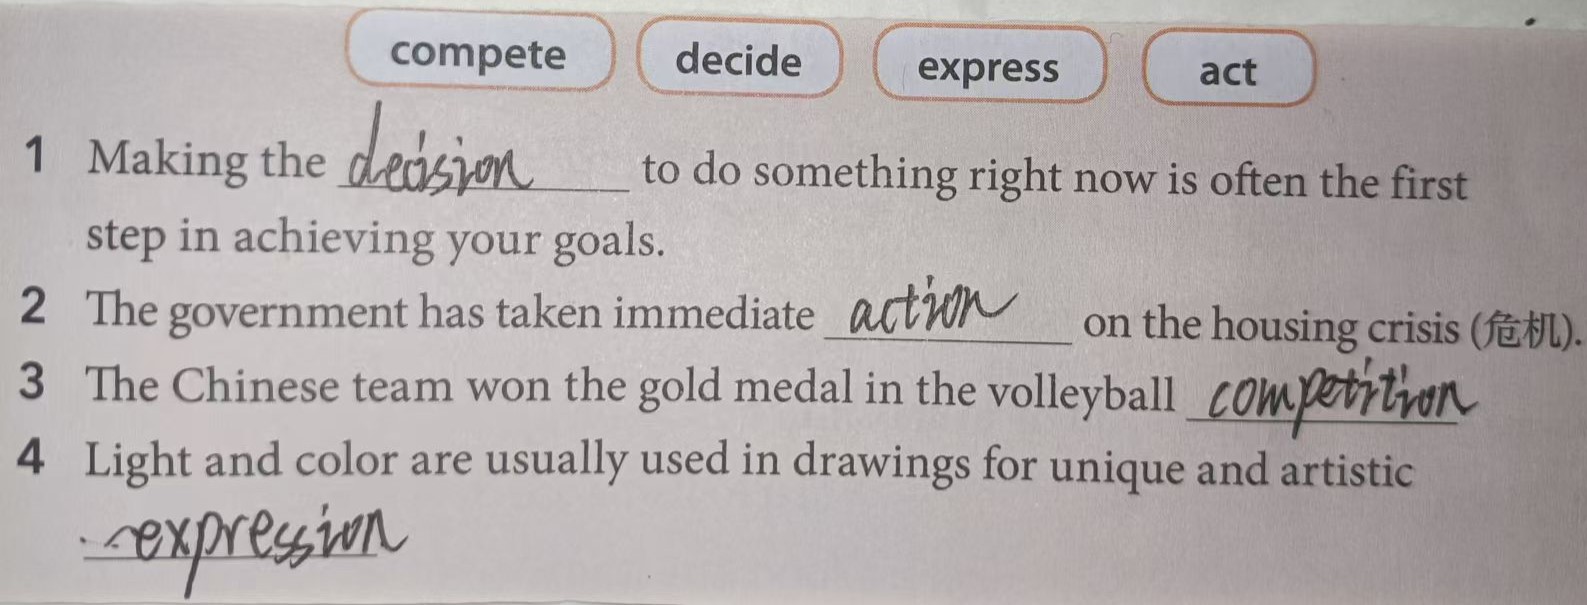 compete decide express act
1 Making the decision to do something right now is often the first
step in achieving your goals.
2 The government has taken immediate action on the housing crisis (危机).
3 The Chinese team won the gold medal in the volleyball competition
4 Light and color are usually used in drawings for unique and artistic
expression